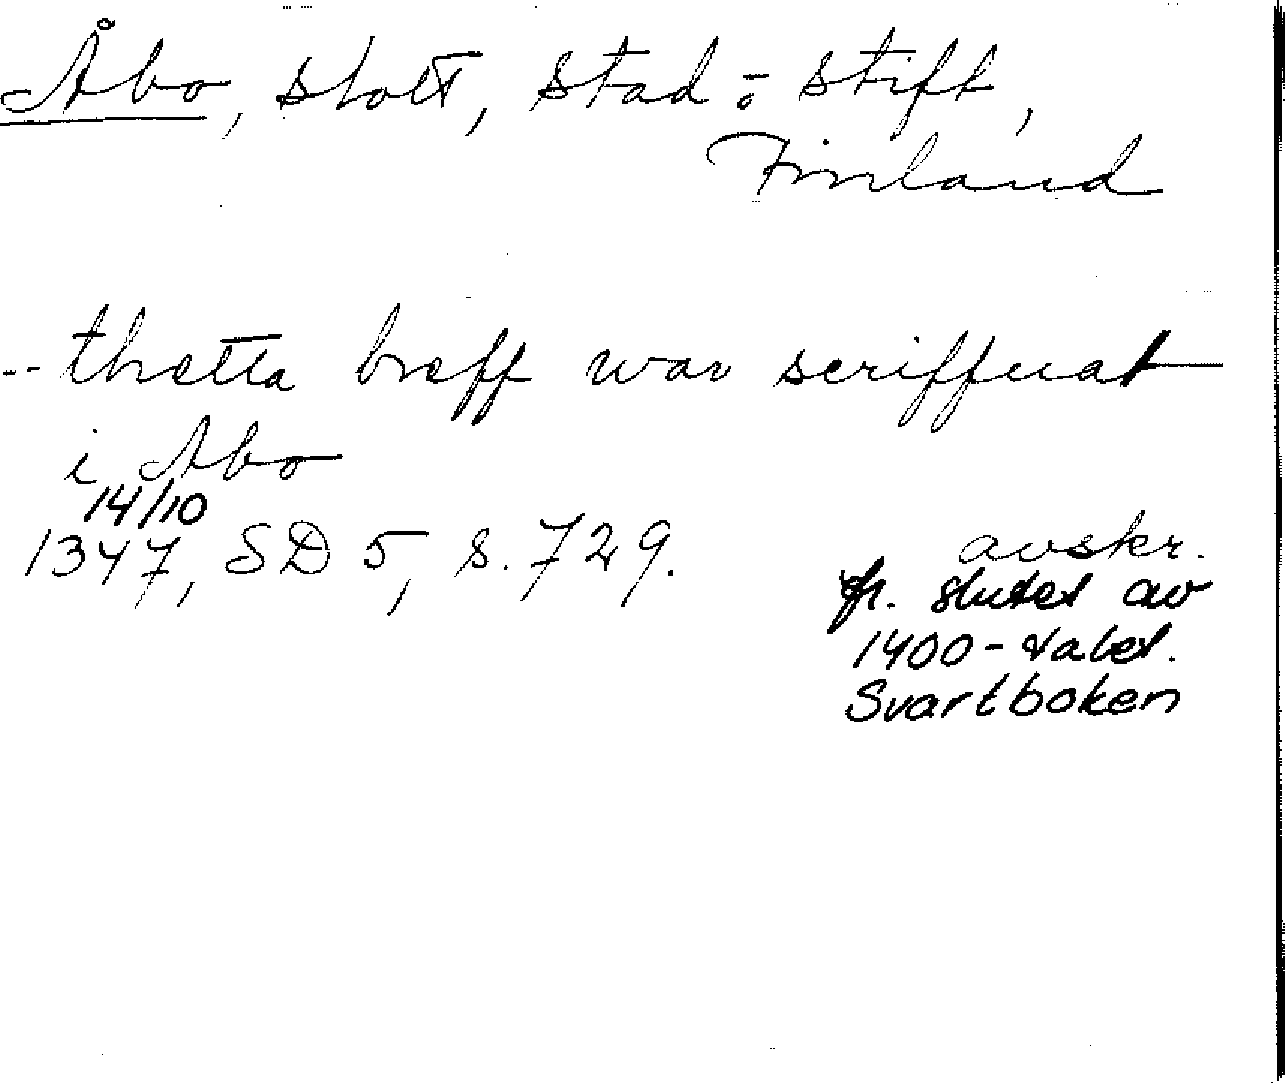 Åbo, slott, stad o. stift,
Finland
-- thetta breff war scriffuat
i Abo
14/10
1347, SD 5, s. 729.
avskr.
fr. slutet av
1400-talet.
Svartboken